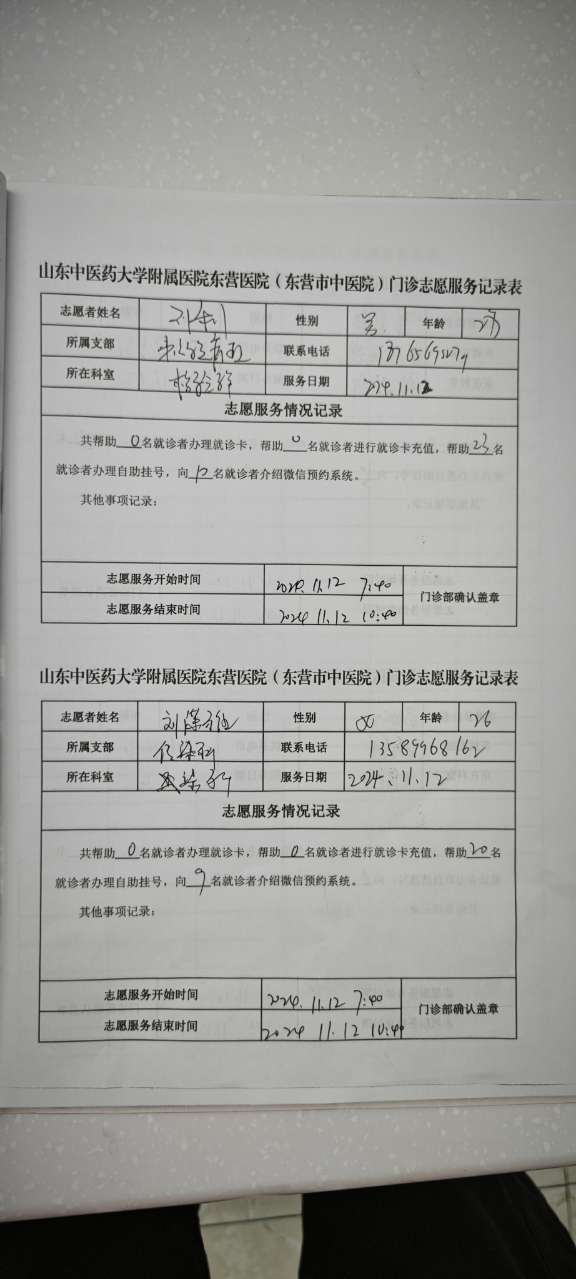 山东中医药大学附属医院东营医院（东营市中医院）门诊志愿服务记录表
志愿者姓名 性别 男 年龄
所属支部 联系电话
所在科室 检验科 服务日期 2024.11.12
志愿服务情况记录
共帮助 0 名就诊者办理就诊卡，帮助 0 名就诊者进行就诊卡充值，帮助 23 名
就诊者办理自助挂号，向 12 名就诊者介绍微信预约系统。
其他事项记录：
志愿服务开始时间 2024.11.12 7:40 门诊部确认盖章
志愿服务结束时间 2024 11.12 10:40
山东中医药大学附属医院东营医院（东营市中医院）门诊志愿服务记录表
志愿者姓名 性别 女 年龄 26
所属支部 联系电话 13589968162
所在科室 服务日期 2024.11.12
志愿服务情况记录
共帮助 0 名就诊者办理就诊卡，帮助 0 名就诊者进行就诊卡充值，帮助 20 名
就诊者办理自助挂号，向 9 名就诊者介绍微信预约系统。
其他事项记录：
志愿服务开始时间 2024.11.12 7:40 门诊部确认盖章
志愿服务结束时间 2024 11.12 10:40